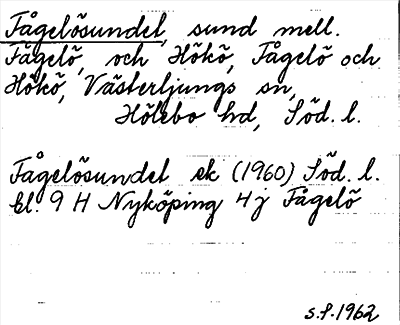 Fågelösundet, sund mell.
Fågelö, och Hökö, Fågelö och
Hökö, Västerljungs sn,
Hölebo hd, Söd. l.
Fågelösundet ek (1960) Söd. l.
bl. 9 H Nyköping 4 j Fågelö
s.f. 1962